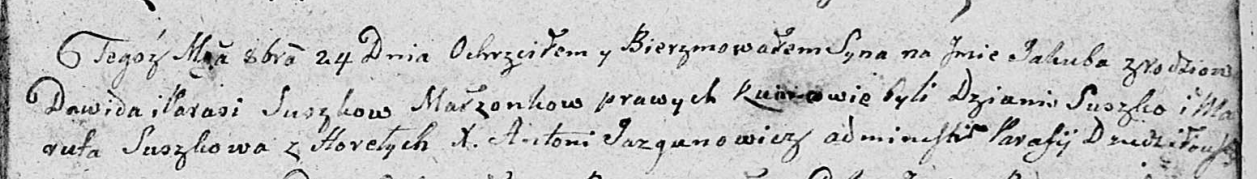 Tegoż Mca 8bra 24 Dnia Ochrzciłem y Bierzmowałem Syna na Jmie Jakuba zrodzion
Dawida i Parasi Suszkow Małzonkow prawych Kumowie byli Dziami Suszko i Ma
ruta Suszkowa z Horelych X. Antoni Jazgunowicz administr Parafij Dziedziłows